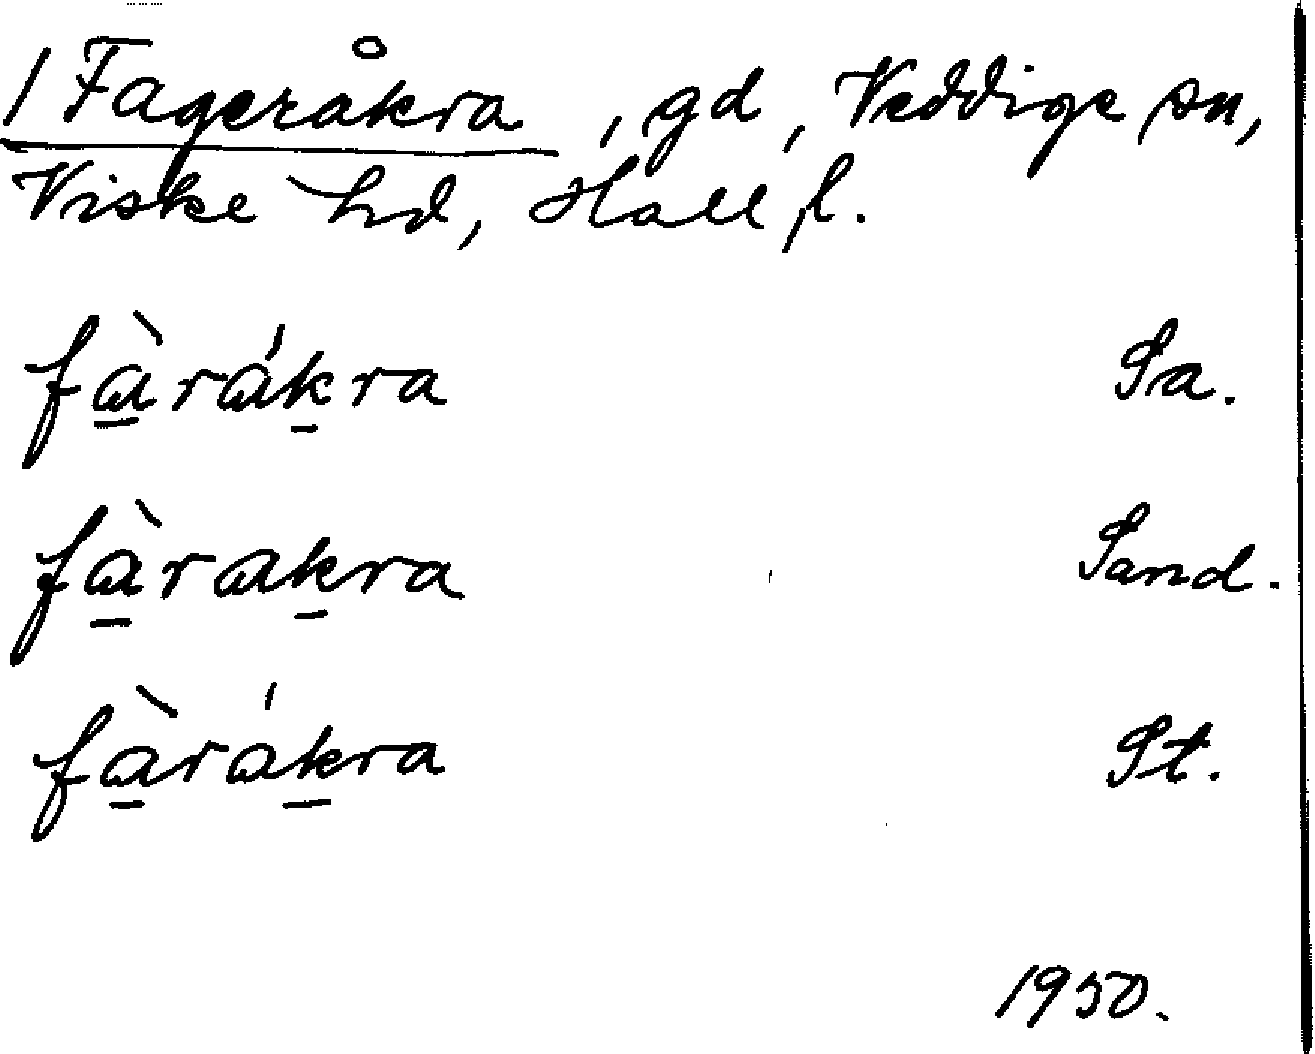 1 Fageråkra, gd, Veddige sn,
Viske hd, Hall l.
fàrákra Sa.
fàrakra Sand.
fàrákra St.
1950.